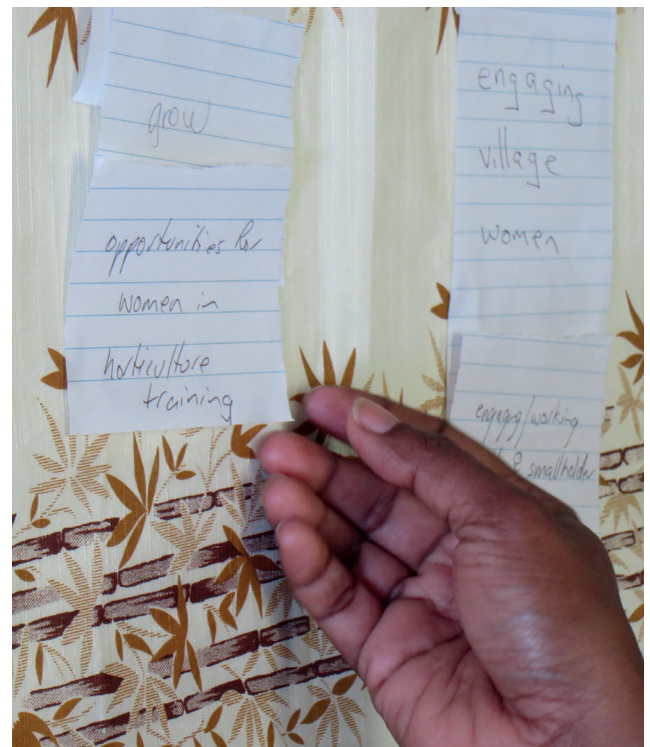 grow
opportunities for
women in
horticulture
training
engaging
village
women
engaging/working
♀ smallholder